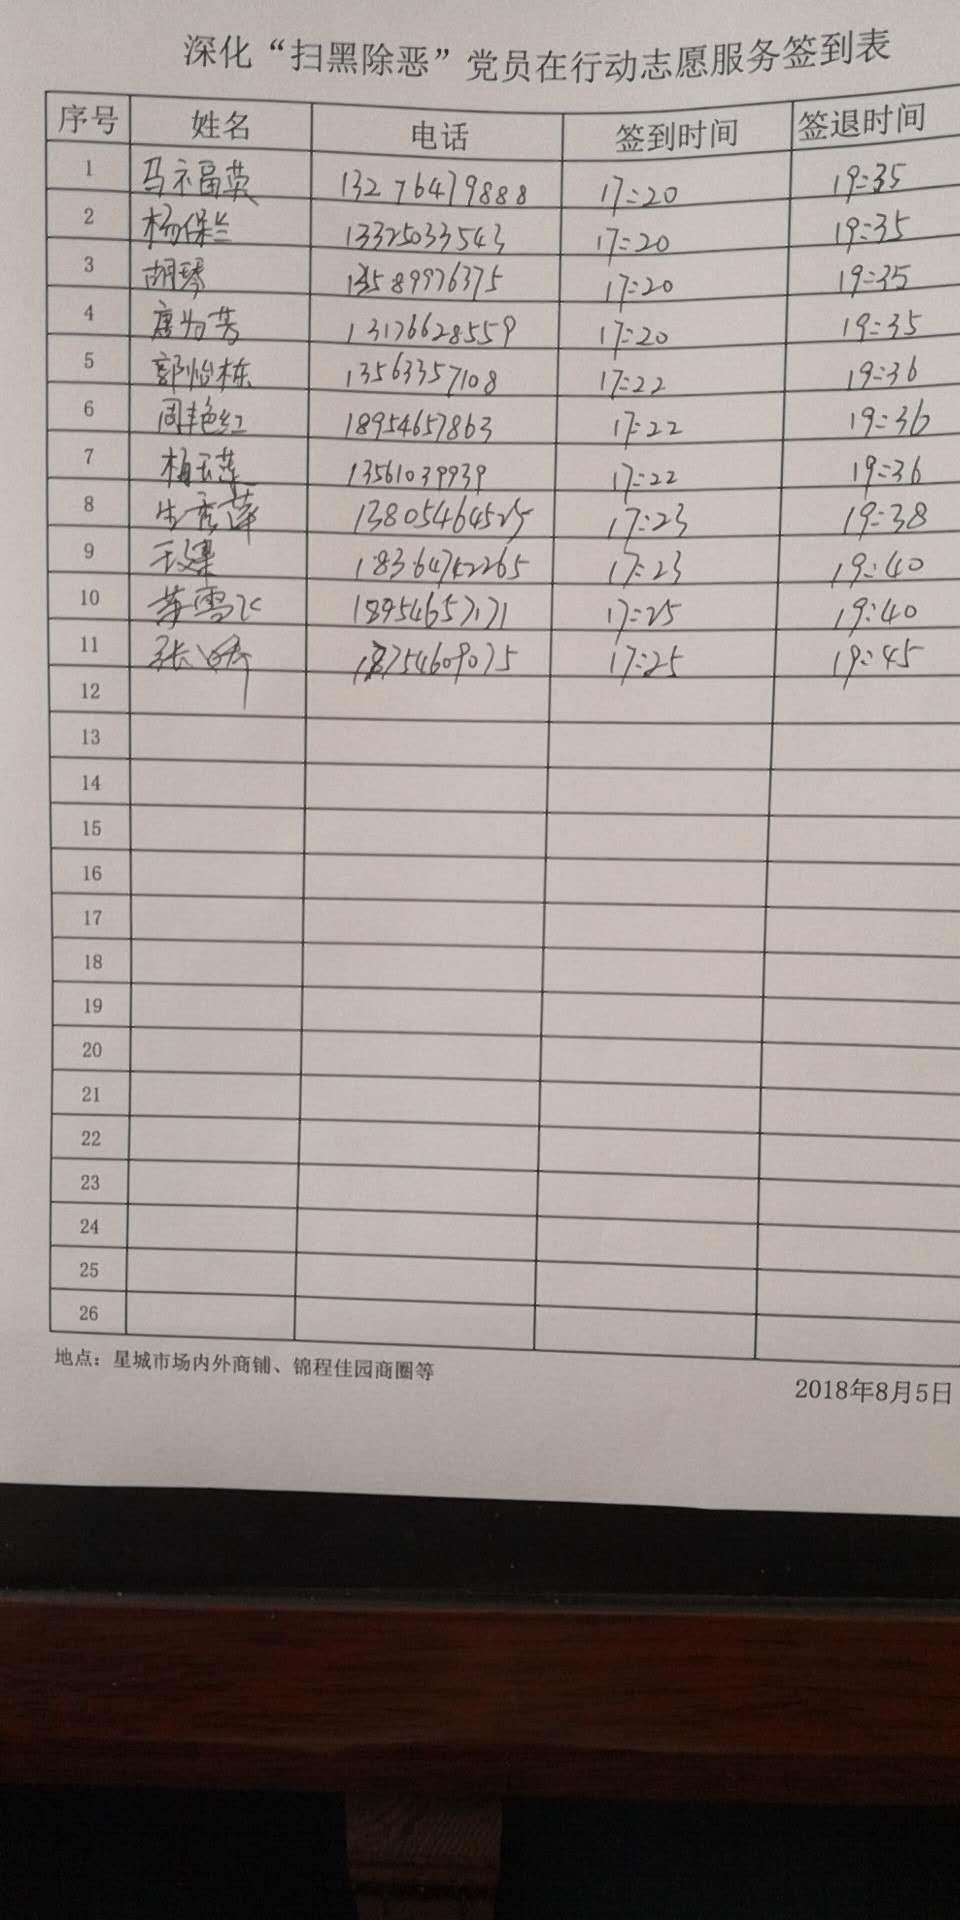 深化“扫黑除恶”党员在行动志愿服务签到表
序号 姓名 电话 签到时间 签退时间
1 马福英 13276479888 17:20 19:35
2 杨保兰 13325033543 17:20 19:35
3 胡琴 13589976375 17:20 19:35
4 唐为芳 13176628559 17:20 19:35
5 郭怡栋 13563357108 17:22 19:36
6 周艳红 18954657863 17:22 19:36
7 杨玉莲 13561039939 17:22 19:36
8 生秀萍 13805464525 17:23 19:38
9 17:23 19:40
10 雪飞 18954657171 17:25 19:40
11 张 18754609075 17:25 19:45
12
13
14
15
16
17
18
19
20
21
22
23
24
25
26
地点：星城市场内外商铺、锦程佳园商圈等
2018年8月5日